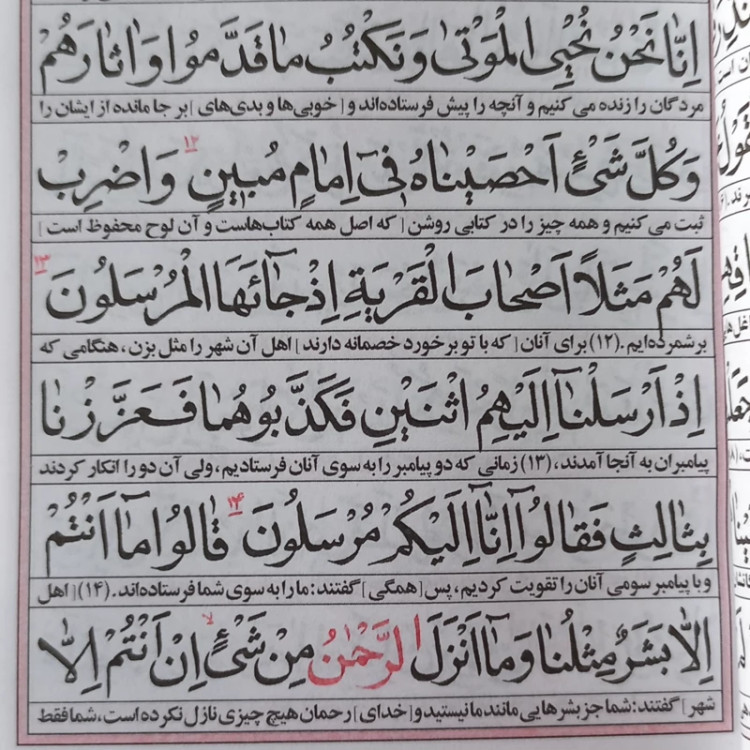 اِنّا نَحْنُ نُحْيِى الْمَوْتىٰ وَ نَكْتُبُ ما قَدَّمُوا وَ اٰثارَهُمْ
مردگان را زنده می‌کنیم و آنچه را پیش فرستاده‌اند و [خوبی‌ها و بدی‌های] بر جا مانده از ایشان را
وَ كُلَّ شَىْءٍ اَحْصَيْناهُ فى اِمامٍ مُبينٍ ۱۲ وَ اضْرِبْ
ثبت می‌کنیم و همه چیز را در کتابی روشن [که اصل همه کتاب‌هاست و آن لوح محفوظ است]
لَهُمْ مَثَلًا اَصْحابَ الْقَرْيَةِ اِذْ جآئَهَا الْمُرْسَلُونَ ۱۳
برشمرده‌ایم. (۱۲) برای آنان [که با تو برخورد خصمانه دارند] اهل آن شهر را مثل بزن، هنگامی که
اِذْ اَرْسَلْنآ اِلَيْهِمُ اثْنَيْنِ فَكَذَّبُوهُما فَعَزَّزْنا
پیامبران به آنجا آمدند، (۱۳) زمانی که دو پیامبر را به سوی آنان فرستادیم، ولی آن دو را انکار کردند
بِثالِثٍ فَقالُوآ اِنّآ اِلَيْكُمْ مُرْسَلُونَ ۱۴ قالُوا مآ اَنْتُمْ
و با پیامبر سومی آنان را تقویت کردیم، پس [همگی] گفتند: ما را به سوی شما فرستاده‌اند. (۱۴) [اهل
اِلّا بَشَرٌ مِثْلُنا وَ مآ اَنْزَلَ الرَّحْمٰنُ مِنْ شَىْءٍ لا اِنْ اَنْتُمْ اِلّا
شهر] گفتند: شما جز بشرهایی مانند ما نیستید و [خدای] رحمان هیچ چیزی نازل نکرده است، شما فقط